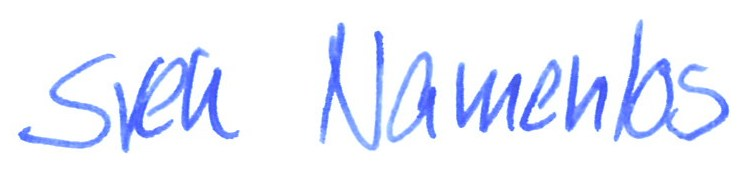 Sven Namenlos